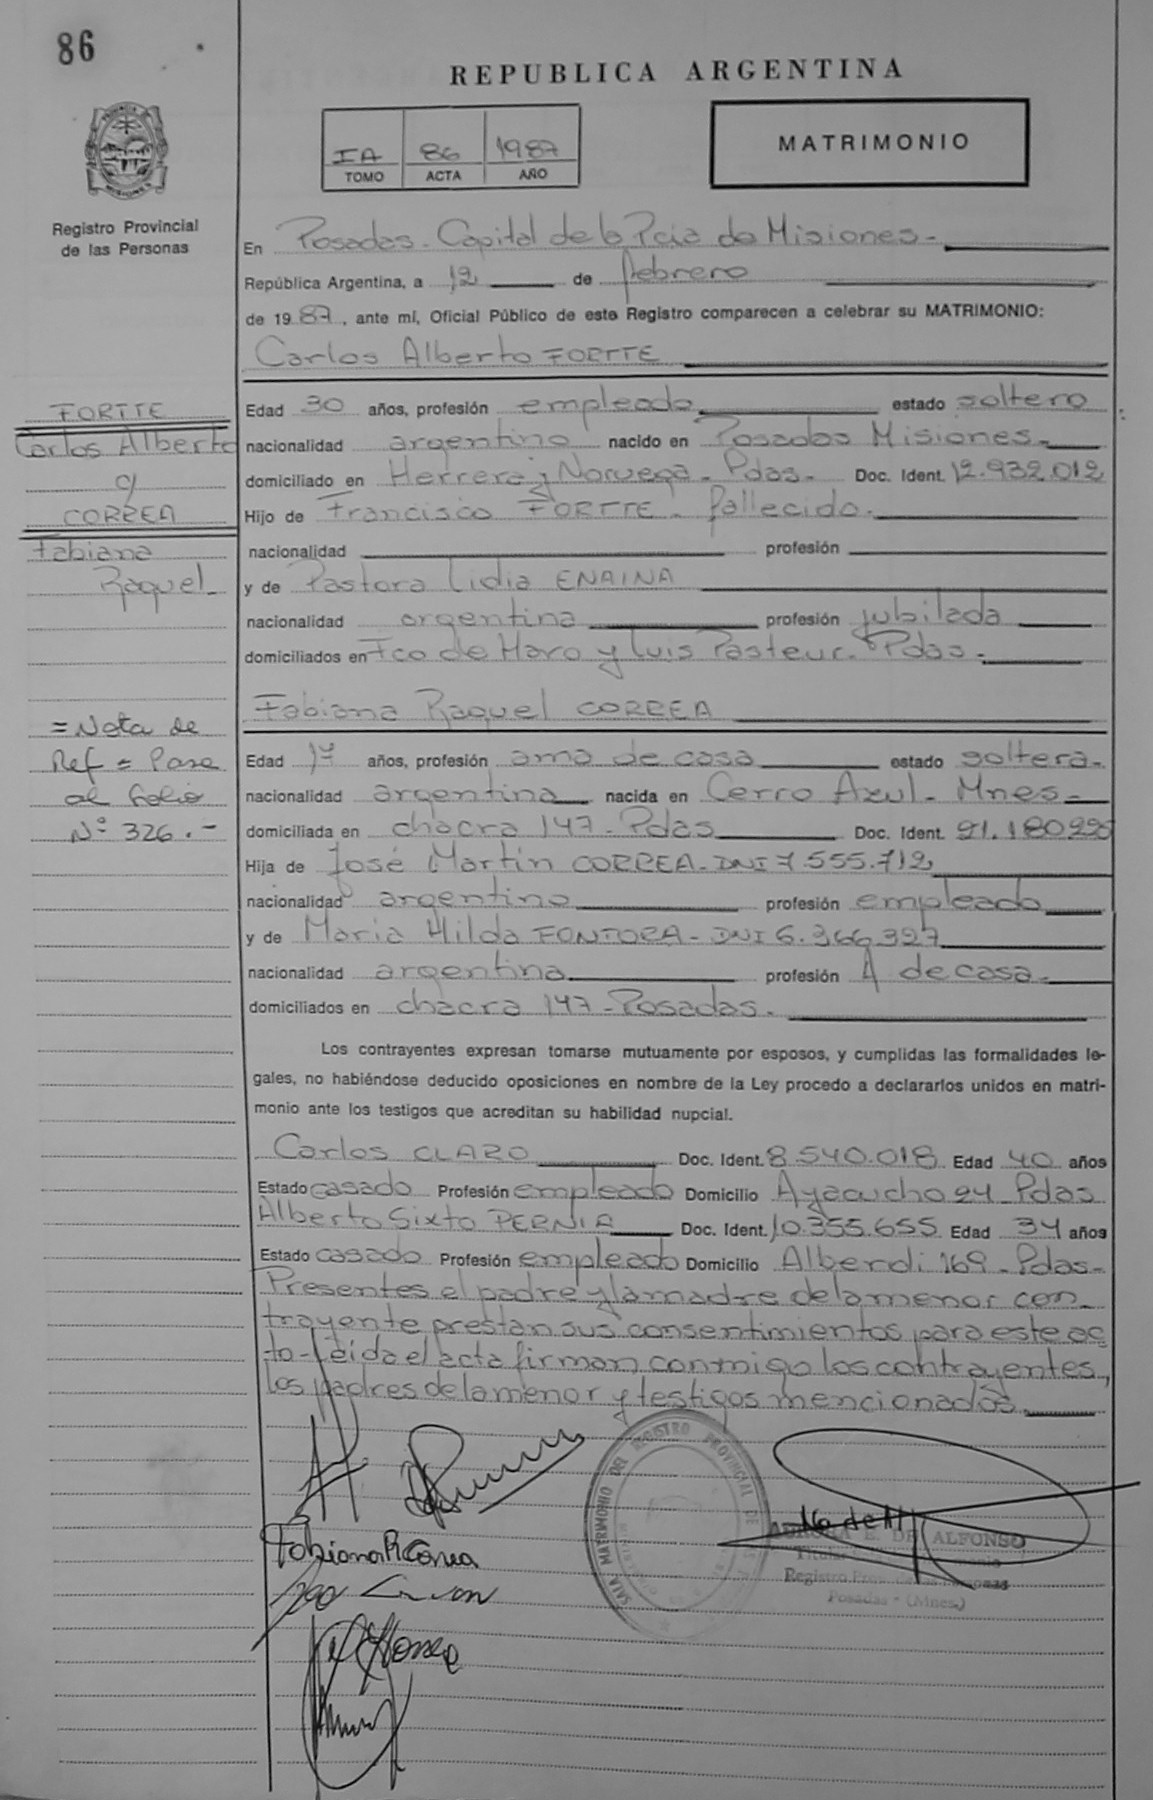 86
REPUBLICA ARGENTINA
IA 86 1987
TOMO ACTA AÑO
MATRIMONIO
Registro Provincial
de las Personas
En Posadas - Capital de la Pcia de Misiones -
República Argentina, a 12 de febrero
de 1987, ante mí, Oficial Público de este Registro comparecen a celebrar su MATRIMONIO:
Carlos Alberto FORTTE
FORTTE
Carlos Alberto
c/
CORREA
Fabiana
Raquel -
= Nota de
Ref = Pase
al folio
Nº 326.-
Edad 30 años, profesión empleado estado soltero
nacionalidad argentino nacido en Posadas Misiones -
domiciliado en Herrera y Noruega - Pdas - Doc. Ident. 12.932.012
Hijo de Francisco FORTTE - fallecido -
nacionalidad profesión
y de Pastora Lidia ENRINA
nacionalidad argentina profesión jubilada
domiciliados en Fco de Haro y Luis Pasteur - Pdas -
Fabiana Raquel CORREA
Edad 17 años, profesión ama de casa estado soltera -
nacionalidad argentina nacida en Cerro Azul - Mnes -
domiciliada en chacra 147 - Pdas Doc. Ident.
Hija de José Martin CORREA - DNI 7.555.712
nacionalidad argentino profesión empleado
y de Maria Hilda FONTORA - DNI 6.366.327
nacionalidad argentina profesión A de casa -
domiciliados en chacra 147 - Posadas -
Los contrayentes expresan tomarse mutuamente por esposos, y cumplidas las formalidades le-
gales, no habiéndose deducido oposiciones en nombre de la Ley procedo a declararlos unidos en matri-
monio ante los testigos que acreditan su habilidad nupcial.
Carlos CLARO Doc. Ident. 8.540.018 Edad 40 años
Estado casado Profesión empleado Domicilio Ayacucho 24 Pdas
Alberto Sixto PERNIA Doc. Ident. 10.355.655 Edad 34 años
Estado casado Profesión empleado Domicilio Alberdi 169 - Pdas -
Presentes el padre y la madre de la menor con-
trayente prestan sus consentimientos para este ac-
to - Leida el acta firman conmigo los contrayentes,
los padres de la menor y testigos mencionados
Fabiana R Correa
SALA MATRIMONIO DEL REGISTRO PROVINCIAL DE
E. DE ALFONSO
Registro Prov.
Posadas - (Mnes.)